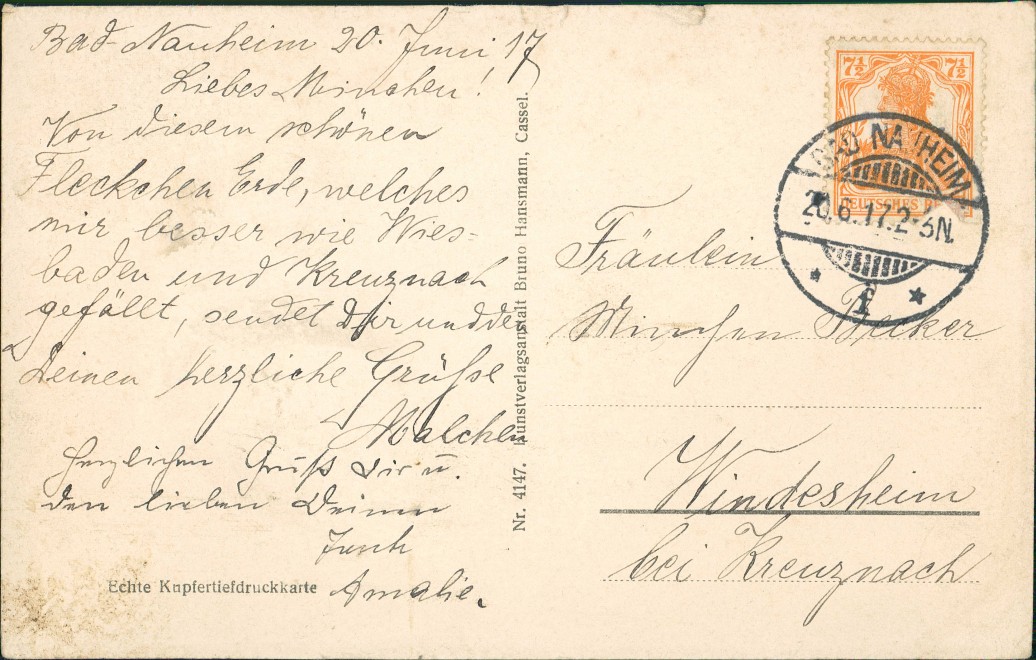 Bad-Nauheim 20. Juni 17
Liebes Minchen!
Von diesem schönen
Fleckchen Erde, welches
mir besser wie Wies-
baden und Kreuznach
gefällt, sendet Dir und den
Deinen herzliche Grüße
Malchen
Herzlichen Gruß Dir u.
den lieben Deinen
Amalie.
Echte Kupfertiefdruckkarte
Nr. 4147. Kunstverlagsanstalt Bruno Hansmann, Cassel.
7½ 7½
DEUTSCHES
BAD NAUHEIM
20.6.17.2-3N.
Fräulein
Minchen Becker
Windesheim
bei Kreuznach